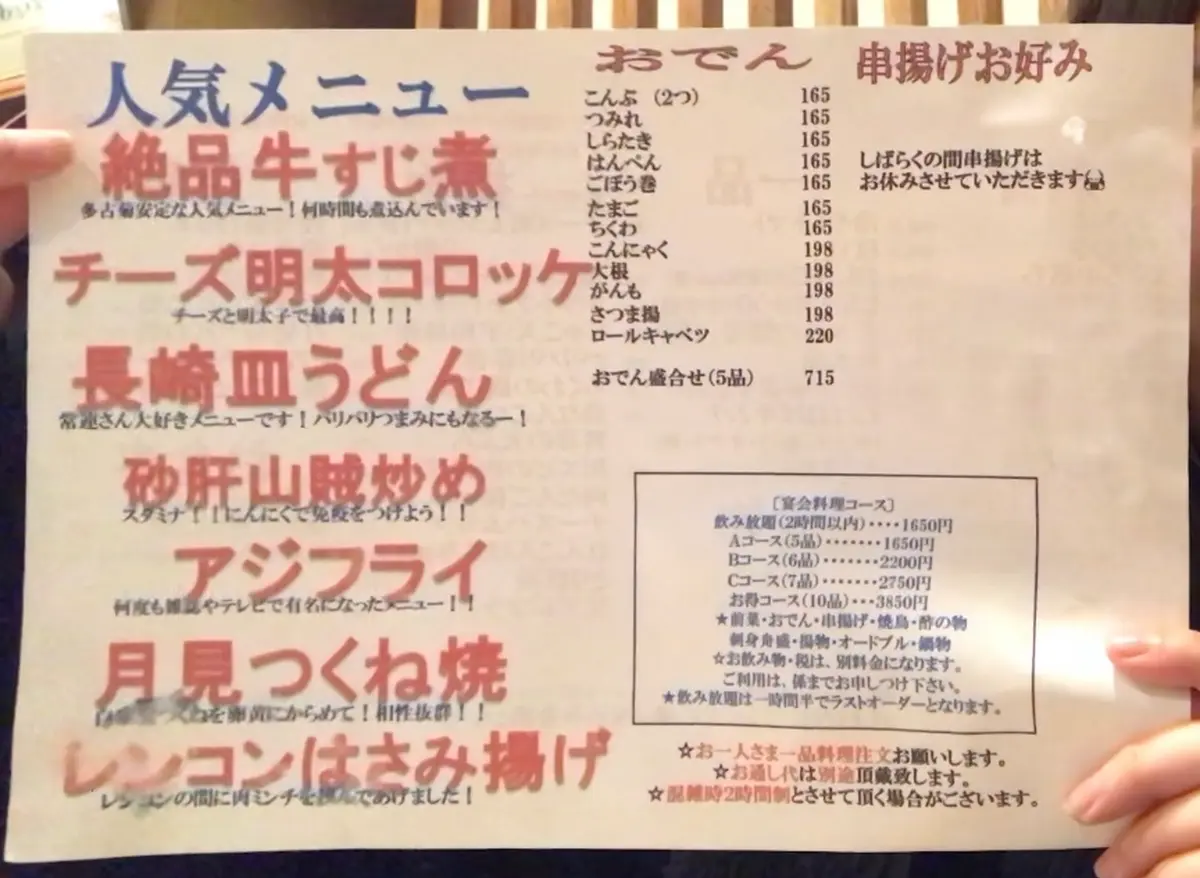 人気メニュー
絶品牛すじ煮
多古菊安定な人気メニュー!何時間も煮込んでいます!
チーズ明太コロッケ
チーズと明太子で最高!!!!
長崎皿うどん
常連さん大好きメニューです!パリパリつまみにもなるー!
砂肝山賊炒め
スタミナ!!にんにくで免疫をつけよう!!
アジフライ
何度も雑誌やテレビで有名になったメニュー!!
月見つくね焼
つくねを卵黄にからめて!相性抜群!!
レンコンはさみ揚げ
レンコンの間に肉ミンチを挟んであげました!
おでん
こんぶ (2つ) 165
つみれ 165
しらたき 165
はんぺん 165
ごぼう巻 165
たまご 165
ちくわ 165
こんにゃく 198
大根 198
がんも 198
さつま揚 198
ロールキャベツ 220
おでん盛合せ(5品) 715
串揚げお好み
しばらくの間串揚げは
お休みさせていただきます
[宴会料理コース]
飲み放題(2時間以内)‥‥1650円
Aコース(5品)‥‥‥・1650円
Bコース(6品)‥‥‥・2200円
Cコース(7品)‥‥‥・2750円
お得コース(10品)・・・3850円
★前菜・おでん・串揚げ・焼鳥・酢の物
刺身舟盛・揚物・オードブル・鍋物
☆お飲み物・税は、別料金になります。
ご利用は、係までお申しつけ下さい。
★飲み放題は一時間半でラストオーダーとなります。
☆お一人さま一品料理注文お願いします。
☆お通し代は別途頂戴致します。
☆混雑時2時間制とさせて頂く場合がございます。